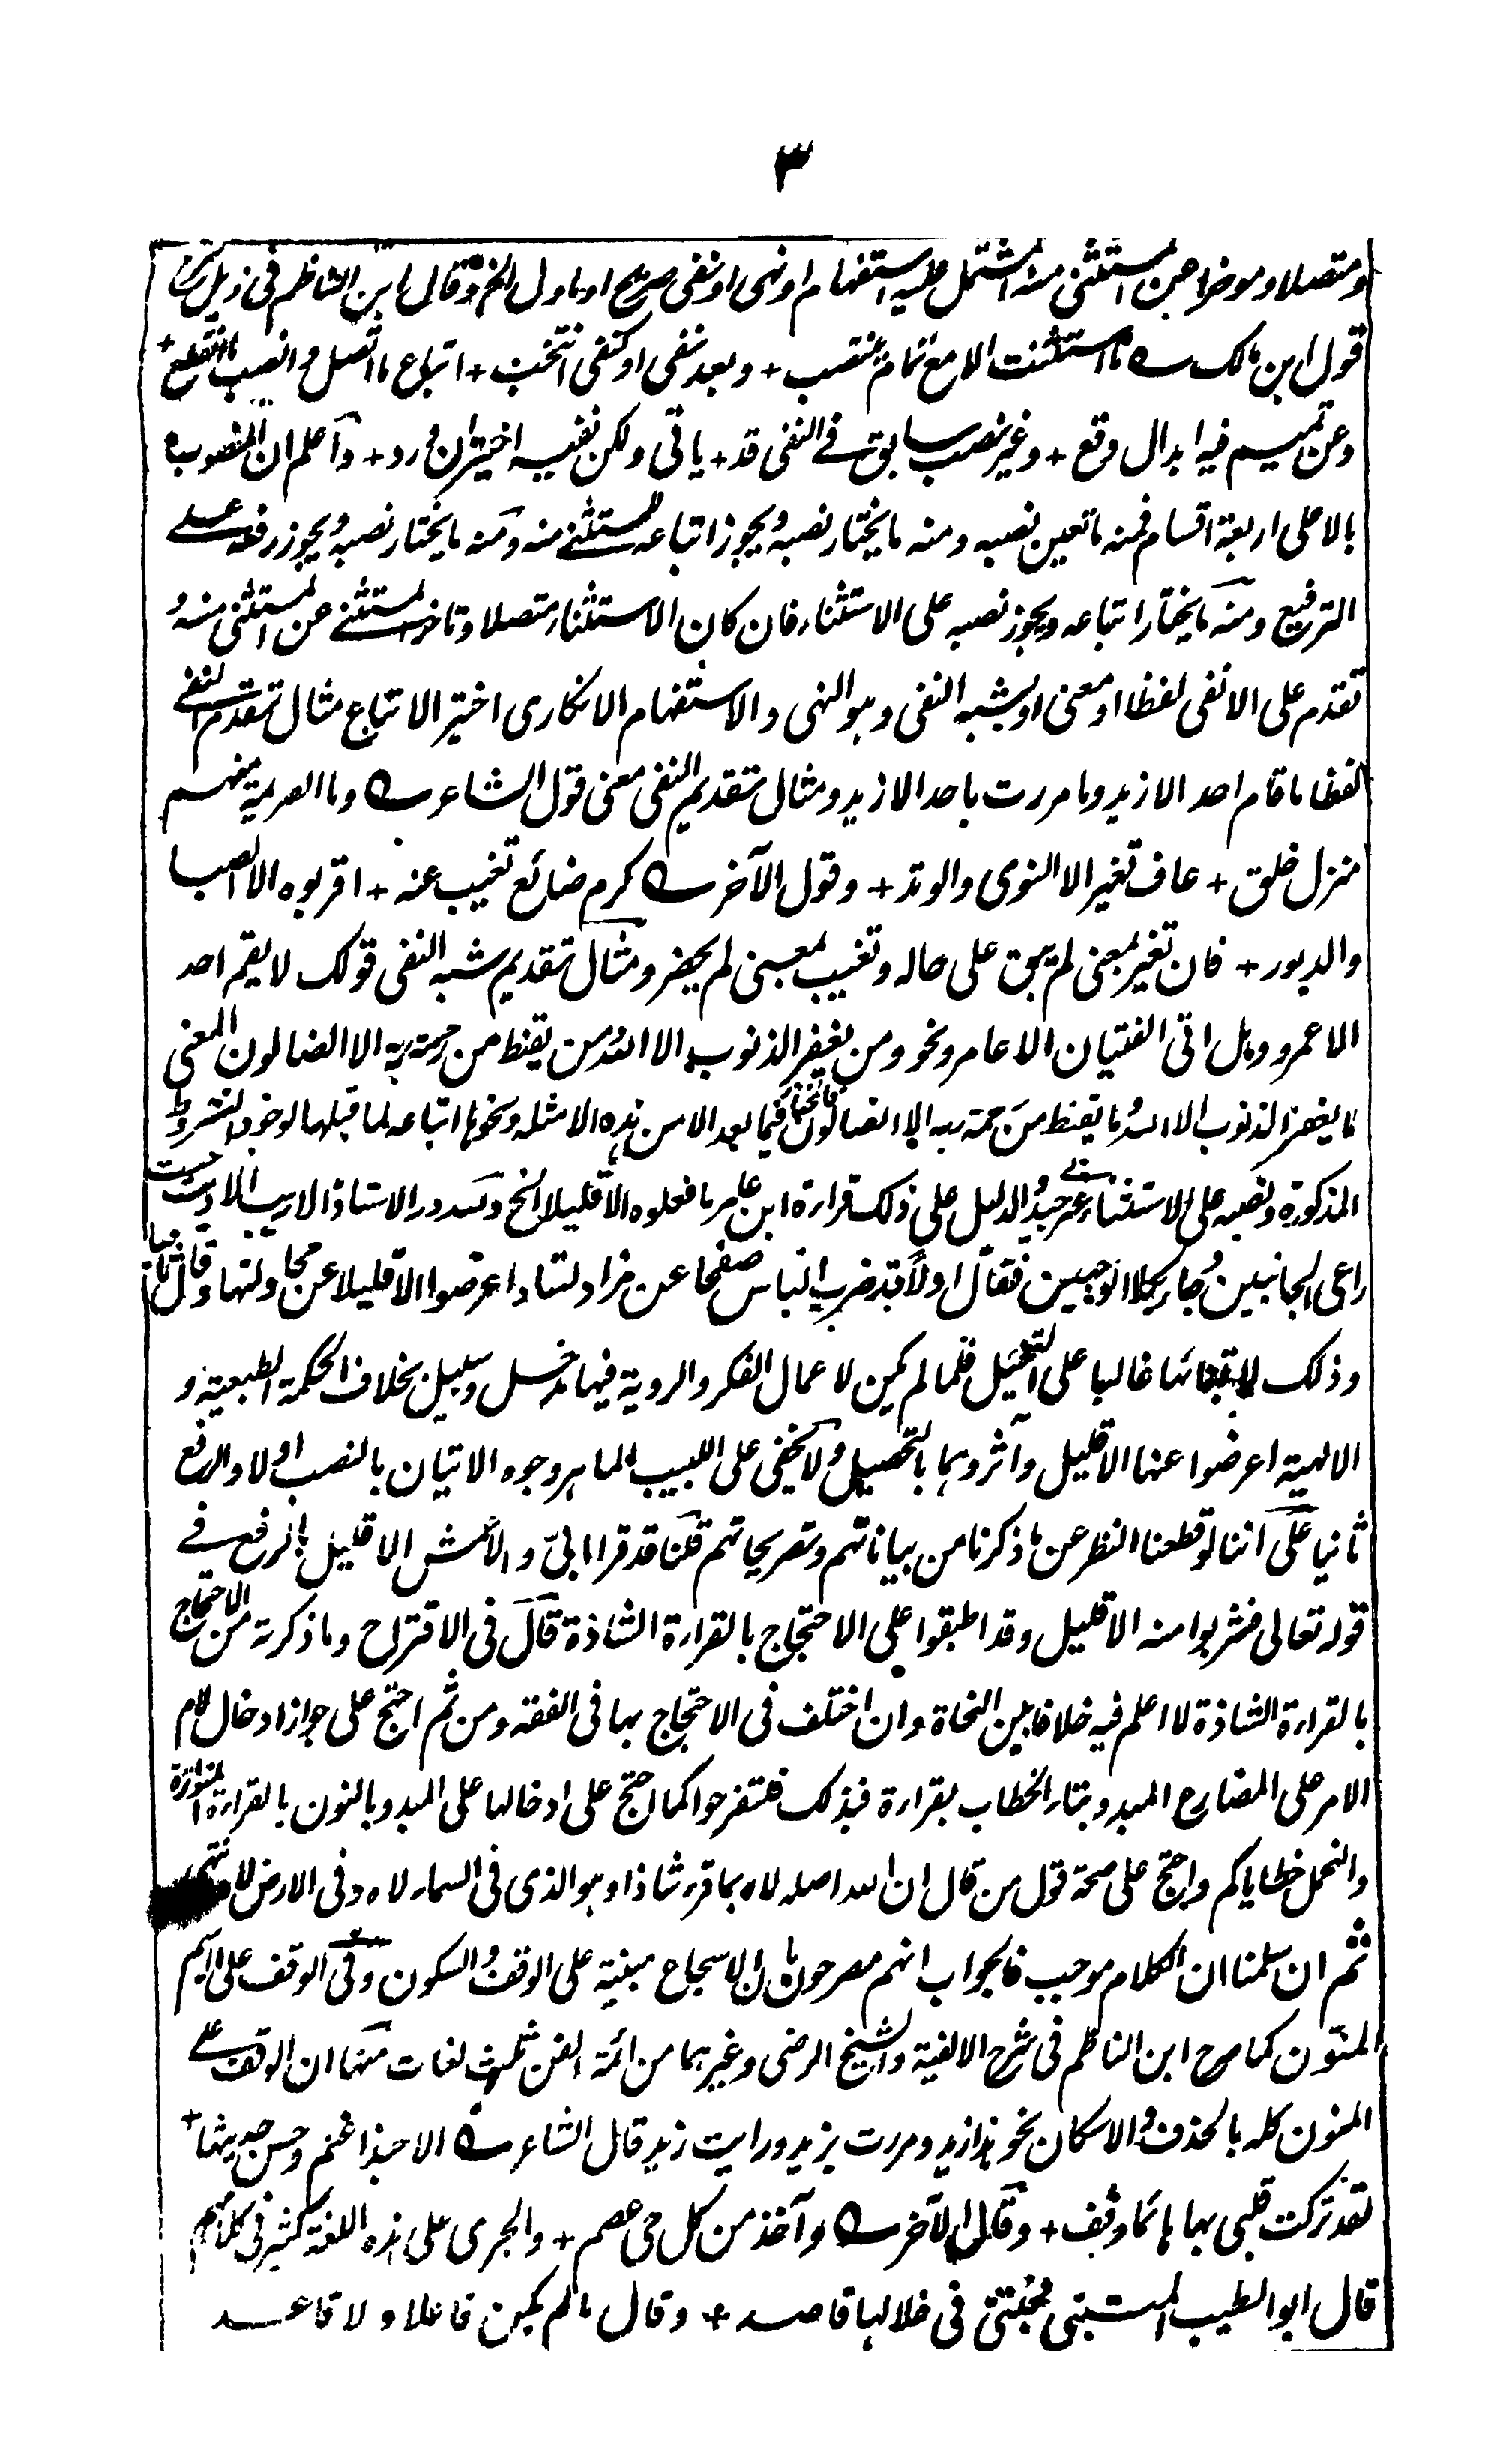 ٣
ومتصلا وموخرا عن المستثنى منه المشتمل عليه استفهام او نهى او نفى صريح او ماول الخ وقال ابن الناظم فى ذيل شرح
قول ابن مالك ؎ ما استثنت الا مع تمام ينتصب + وبعد نفى او كنفى انتخب + اتباع ما اتصل وانصب ما انقطع +
وعن تميم فيه ابدال وقع + وغير نصب سابق فے النفى قد + ياتى ولكن نصبه اختر ان ورد + واعلم ان المنصوب
بالا على اربعة اقسام فمنه ما تعين نصبه ومنه ما يختار نصبه ويجوز اتباعه للمستثنے منه ومنه ما يختار نصبه ويجوز رفعه علے
الترفيع ومنه ما يختار اتباعه ويجوز نصبه على الاستثناء فان كان الاستثناء متصلا وتاخر المستثنے عن المستثنى منه و
تقدم على الا نفى لفظا او معنى او يشبه النفى وهو النهى والاستفهام الانكارى اختير الاتباع مثال تقدم النفے
لفظا ما قام احد الا زيد وما مررت باحد الا زيد ومثال تقديم النفى معنى قول الشاعر ؎ وبالصريمة منهم
منزل خلق + عاف تغير الا النوى والوتد + وقول الآخر ؎ كرم ضائع تغيب عنه + اقربوه الا الصبا
والدبور + فان تغير بمعنى لم يبق على حاله وتغيب بمعنى لم يحضر ومثال تقديم شبه النفى قولك لا يقم احد
الا عمرو وهل اتى الفتيان الا عامر ونحو ومن يغفر الذنوب الا الله ومن يقنط من رحمة ربه الا الضالون المعنى
ما يغفر الذنوب الا الله وما يقنط من رحمة ربه الا الضالون فالمختار فيما بعد الا من هذه الامثلة ونحوها اتباعه لما قبلها لوجود الشروط
المذكورة ونصبه على الاستثناء عربى جيد والدليل على ذلك قراءة ابن عامر ما فعلوه الا قليلا الخ ولله در الاستاذ الاريب الاديب حيث
راعى الجانبين وجاء بكلا الوجهين فقال اولا قد ضرب الناس صفحا عن مزاولتها واعرضوا الا قليلا عن محاولتها وقال ثانيا
وذلك لابتنائها غالبا على التخيل فلما لم يكن لاعمال الفكر والروية فيها مدخل وسبيل بخلاف الحكمة الطبعية و
الالهية اعرضوا عنها الا قليل وآثروهما بالتحصيل ولا يخفى على اللبيب الماهر وجوه الاتيان بالنصب اولا والرفع
ثانيا على اننا لو قطعنا النظر عن ما ذكرنا من بياناتهم وتصريحاتهم قلنا قد قرا ابىّ والاعمش الا قليل بالرفع فے
قوله تعالى فشربوا منه الا قليل وقد اطبقوا على الاحتجاج بالقراءة الشاذة قال فى الاقتراح وما ذكرته من الاحتجاج
بالقراءة الشاذة لا اعلم فيه خلافا بين النحاة وان اختلف فى الاحتجاج بها فى الفقه ومن ثم احتج على جواز ادخال لام
الامر على المضارع المبدو بتاء الخطاب بقراءة فبذلك فلتفرحوا كما احتج على ادخالها على المبدو بالنون بالقراءة المتواترة
والنحمل خطاياكم واحتج على صحة قول من قال ان الله اصله لاه بما قرء شاذا وهو الذى فى السماء لاه وفى الارض لاه انتهى
ثم ان سلمنا ان الكلام موجب فالجواب انهم مصرحون بان الاسجاع مبنية على الوقف والسكون وفى الوقف على الاسم
المنوّن كما صرح ابن الناظم فى شرح الالفية والشيخ الرضى وغيرهما من ائمة الفن ثلث لغات منها ان الوقف علے
المنون كله بالحذف والاسكان نحو هذا زيد ومررت بزيد ورايت زيد قال الشاعر ؎ الا حبذا غنم وحسن حديثها +
لقد تركت قلبى بها هائما دنف + وقال الآخر ؎ وآخذ من كل حى عصم + والجرى على هذه اللغة كثير فى كلامهم
قال ابو الطيب المتنبى فجئتنى فى خلالها قاصد + وقال ما لم يكن فاعلا ولا قاعد